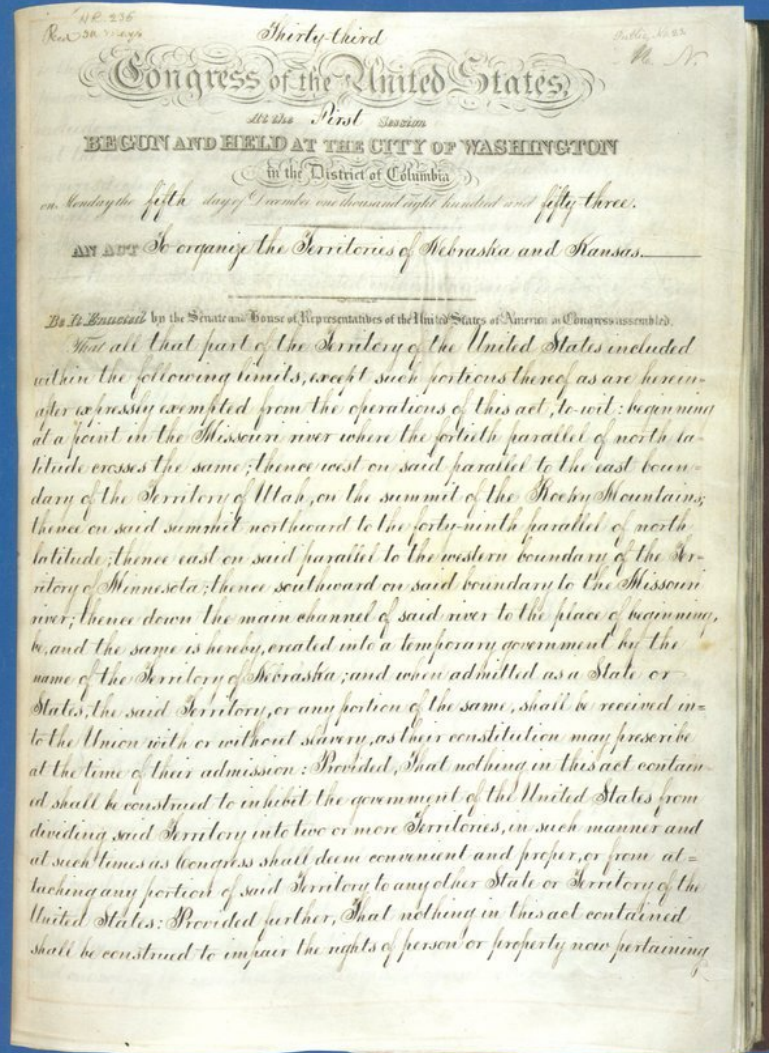 H.R. 236
Thirty-third
Congress of the United States,
At the First Session
BEGUN AND HELD AT THE CITY OF WASHINGTON
in the District of Columbia
on Monday the fifth day of December one thousand eight hundred and fifty-three.
AN ACT To organize the Territories of Nebraska and Kansas.
Be It Enacted by the Senate and House of Representatives of the United States of America in Congress assembled,
That all that part of the Territory of the United States included
within the following limits, except such portions thereof as are herein=
after expressly exempted from the operations of this act, to-wit: beginning
at a point in the Missouri river where the fortieth parallel of north la-
titude crosses the same; thence west on said parallel to the east boun-
dary of the Territory of Utah, on the summit of the Rocky Mountains;
thence on said summit northward to the forty-ninth parallel of north
latitude; thence east on said parallel to the western boundary of the Ter-
ritory of Minnesota; thence southward on said boundary to the Missouri
river; thence down the main channel of said river to the place of beginning,
be, and the same is hereby, created into a temporary government by the
name of the Territory of Nebraska; and when admitted as a State or
States, the said Territory, or any portion of the same, shall be received in=
to the Union with or without slavery, as their constitution may prescribe
at the time of their admission: Provided, That nothing in this act contain-
ed shall be construed to inhibit the government of the United States from
dividing said Territory into two or more Territories, in such manner and
at such times as Congress shall deem convenient and proper, or from at=
taching any portion of said Territory to any other State or Territory of the
United States: Provided further, That nothing in this act contained
shall be construed to impair the rights of person or property now pertaining